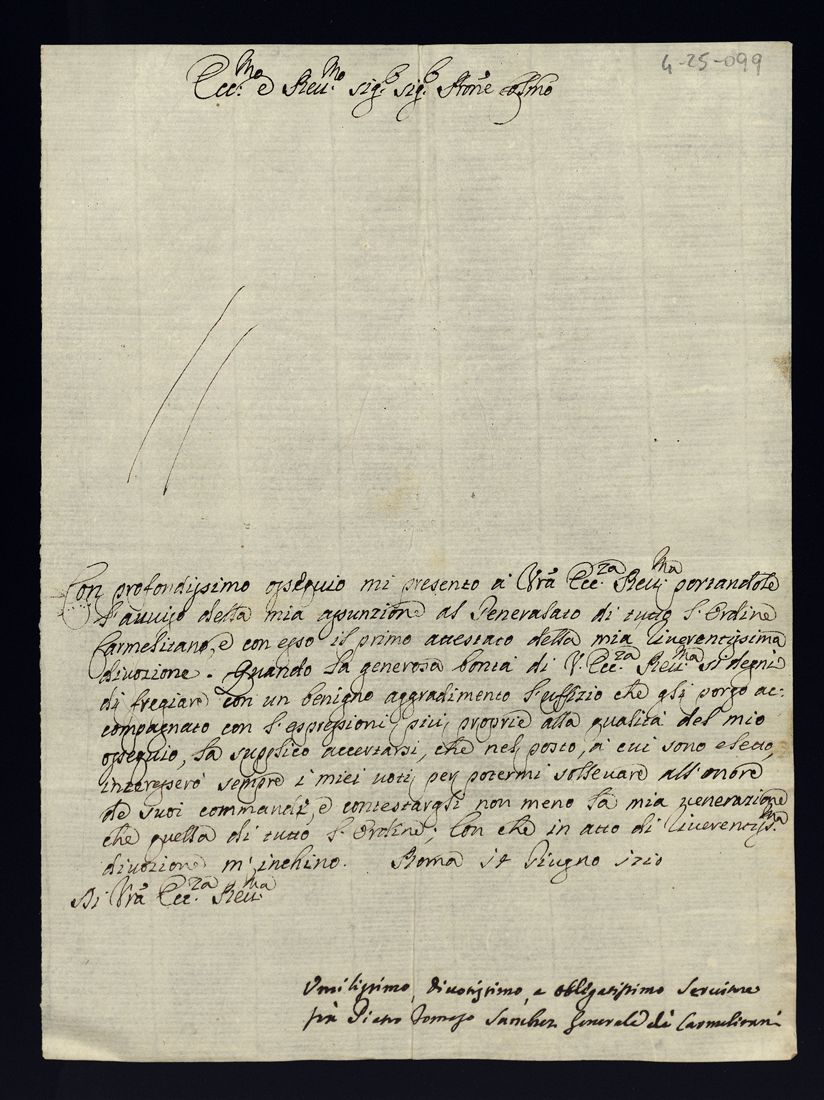 4-25-099
Ecc.mo e Rev.mo Sig.r Sig.r Prone Colmo
Con profondissimo ossequio mi presento a' Vrã Ecc.za Rev.ma portandole
l'avviso della mia assunzione al Generalato di tutto l'Ordine
Carmelitano, e con esso il primo attestato della mia riverentissima
divozione. Quando la generosa bontà di V. Ecc.za Rev.ma si degni
di fregiare con un benigno aggradimento l'uffizio che gli porgo ac:
compagnato con l'espressioni più proprie alla qualità del mio
ossequio, la supplico accertarsi, che nel posto, a' cui sono eletto,
interesserò sempre i miei voti per potermi sollevare all'onore
de suoi commandi, e contestargli non meno la mia venerazione
che quella di tutto l'Ordine; Con che in atto di riverentiss.ma
divozione m'inchino. Roma 14 Giugno 1710
Di Vrã Ecc.za Rev.ma
Umilissimo, divotissimo, e obbligatissimo Servitore
frà Pietro Tomaso Sanchez Generale de Carmelitani